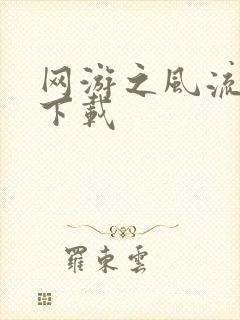 网游之風流
下載
羅東雲